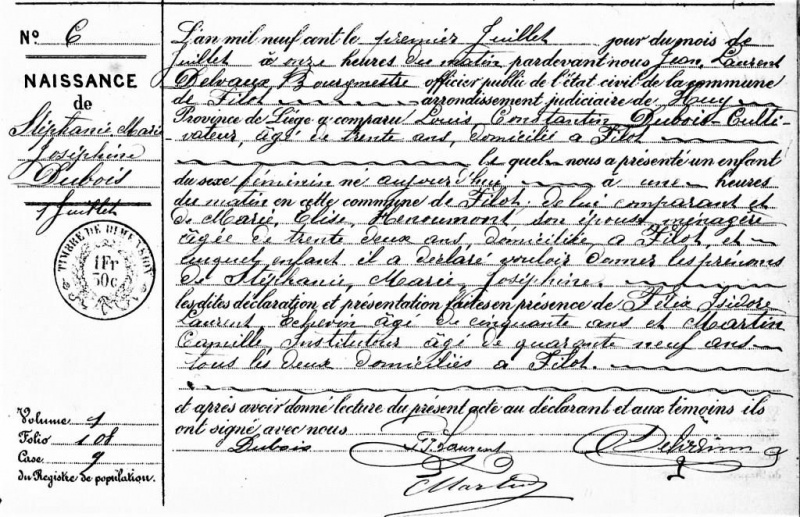 N° 6
NAISSANCE
de
Stéphanie Marie
Joséphine
Dubois
1 Juillet
TIMBRE DE DIMENSION
1 Fr
50 c
Volume 1
Folio 108
Case 9
du Registre de population.
L'an mil neuf cent le premier Juillet jour du mois de
Juillet à onze heures du matin pardevant nous Jean Laurent
Delvaux, Bourgmestre officier public de l'état civil de la commune
de Filot arrondissement judiciaire de Huy
Province de Liège a comparu Louis Constantin Dubois Culti-
vateur, âgé de trente ans, domicilié à Filot
lequel nous a présenté un enfant
du sexe féminin né aujourd'hui à une heures
du matin en cette commune de Filot, de lui comparant et
de Marie, Elise, Henoumont, son épouse ménagère
âgée de trente deux ans, domiciliée, à Filot, et
auquel enfant il a déclaré vouloir donner les prénoms
de Stéphanie, Marie, Joséphine.
les dites déclaration et présentation faites en présence de Félix Isidore
Laurent, Echevin âgé de cinquante ans et Martin
Camille, Instituteur âgé de quarante neuf ans
tous les deux domiciliés à Filot.
et après avoir donné lecture du présent acte au déclarant et aux témoins ils
ont signé avec nous
Dubois Laurent
Martin